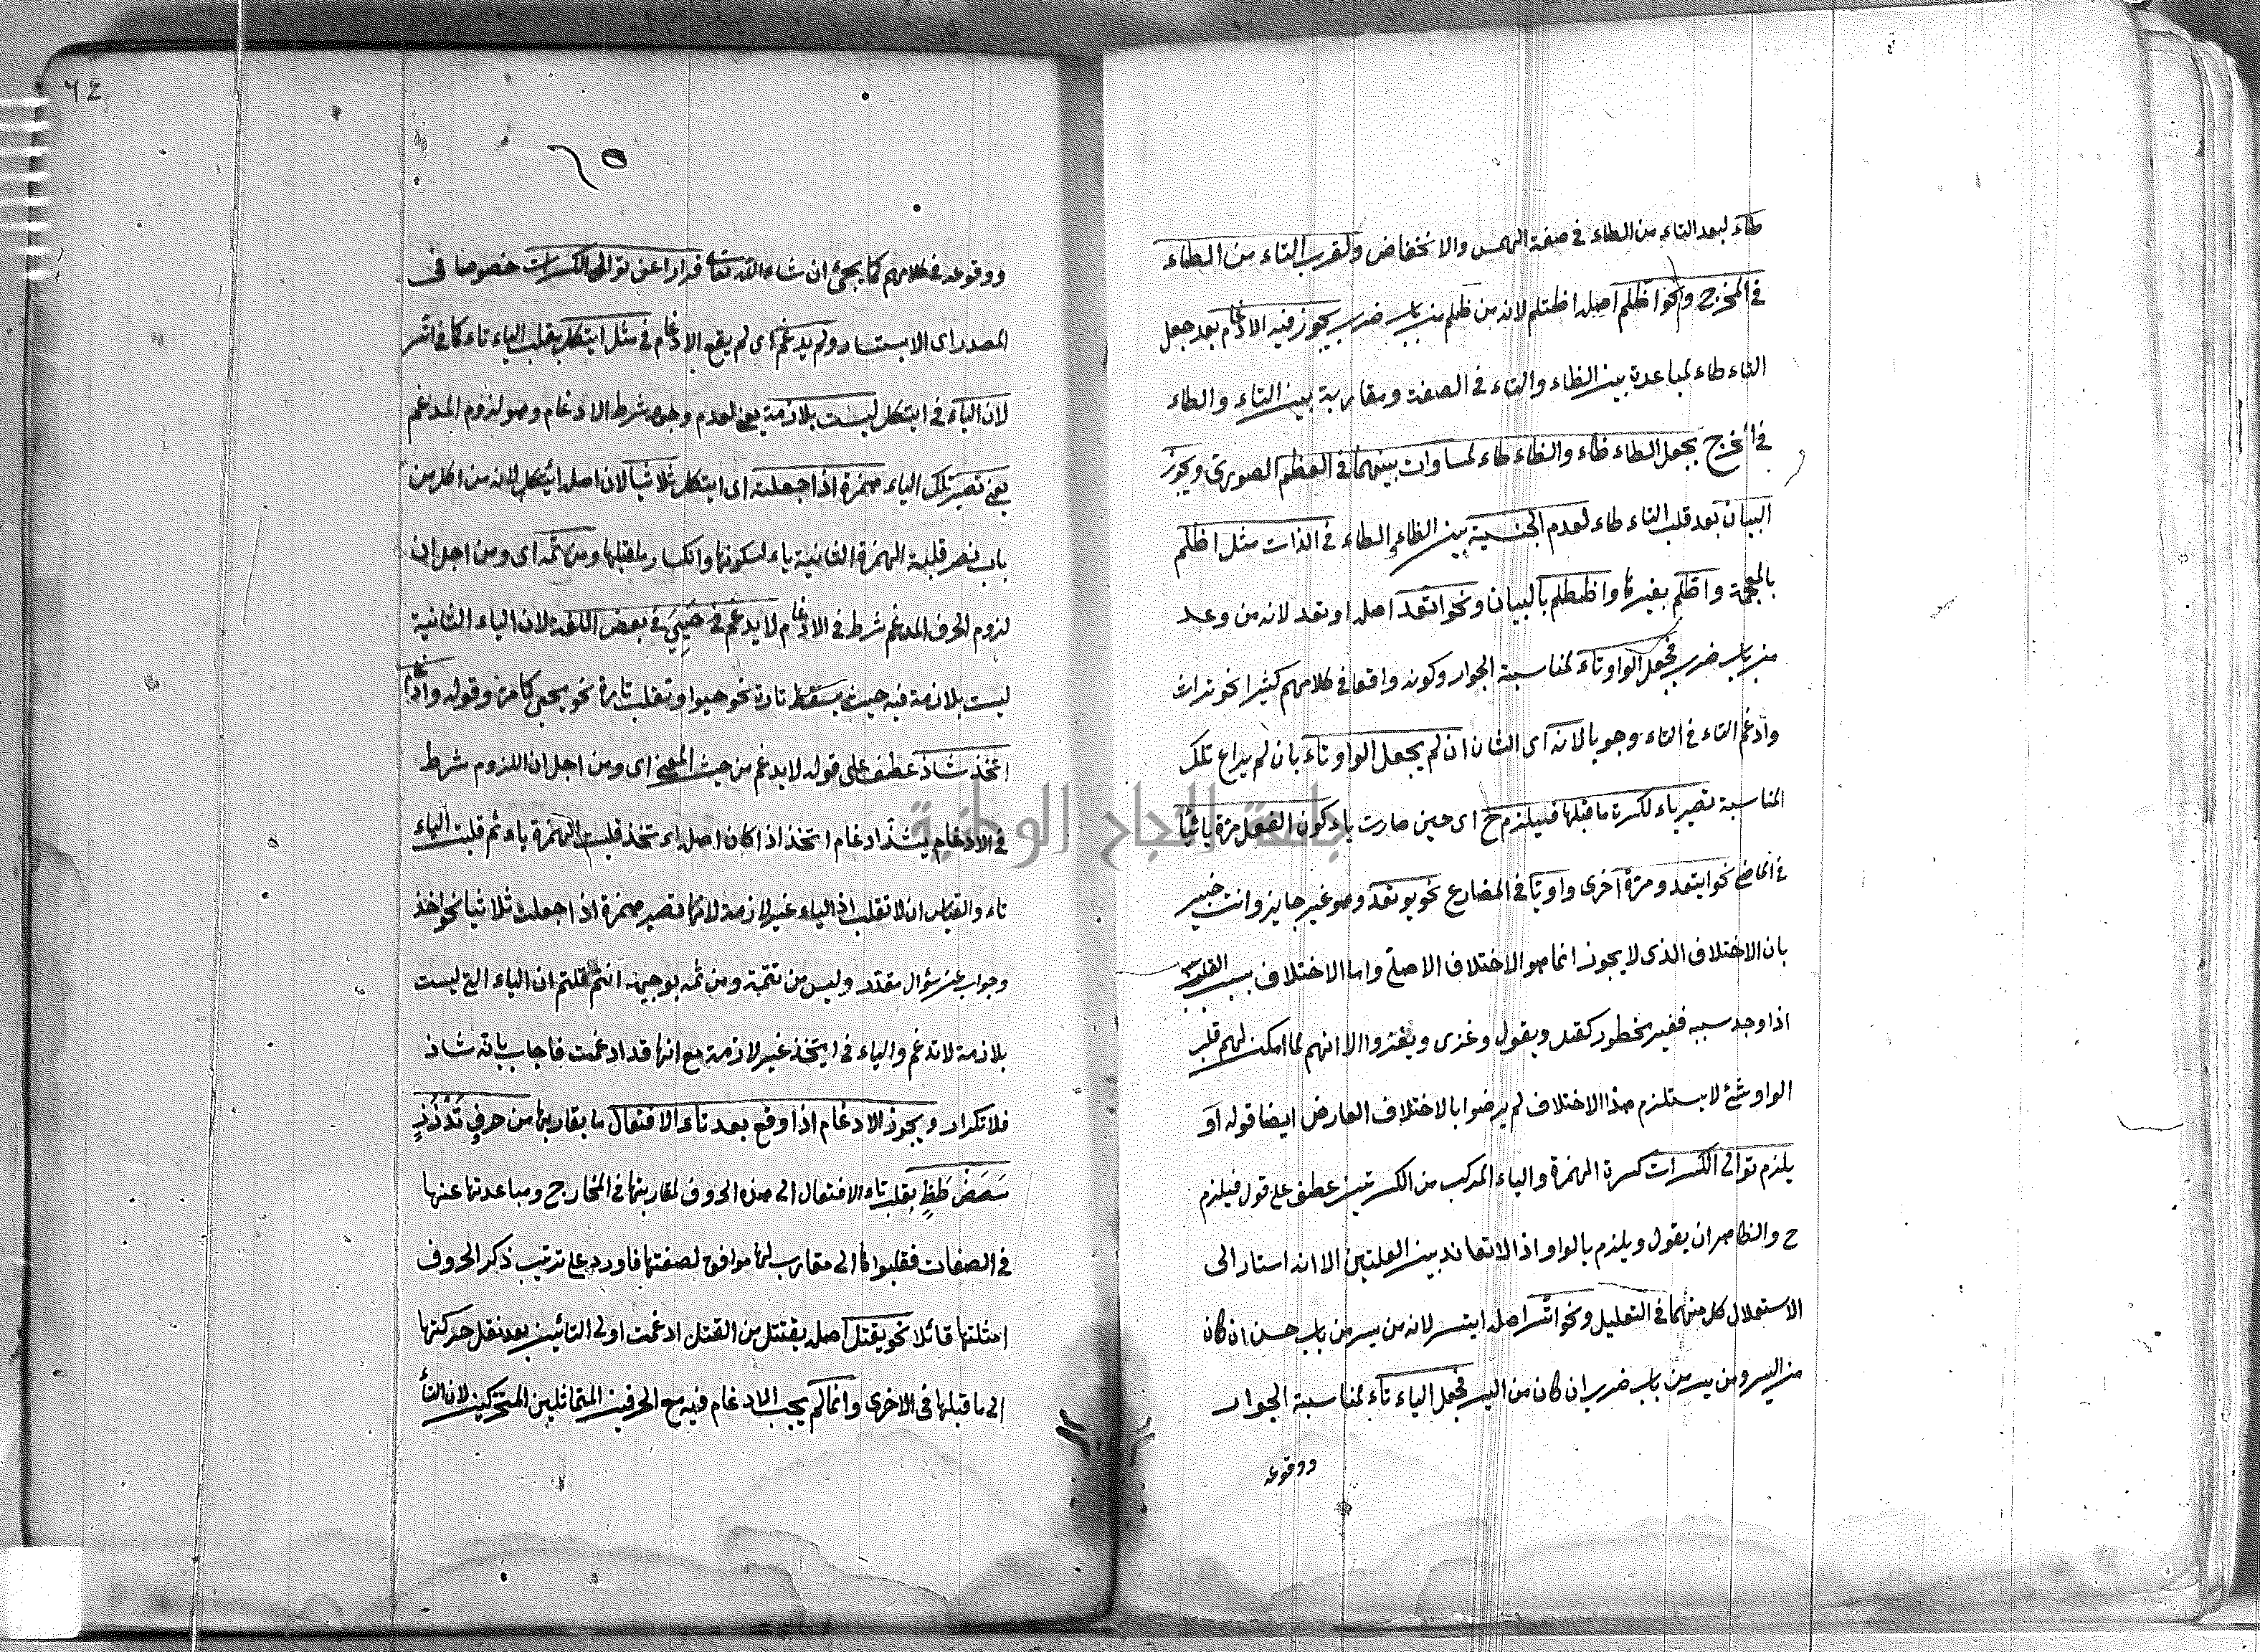 طاء لبعد التاء من الطاء في صفة الهمس والانخفاض ولقرب التاء من الطاء
في المخرج ونحو اظلم اصله اظتلم لانه من ظلم من باب ضرب يجوز فيه الادغام بعد جعل
التاء طاء لمباعدة بين الظاء والتاء في الصفة ومقاربة بين التاء والطاء
في المخرج بجعل الطاء ظاء والظاء طاء لمساوات بينهما في العظم الصورى ويجوز
البيان بعد قلب التاء طاء لعدم الجنسية بين الظاء والطاء في الذات مثل اظلم
بالمعجمة واطلم بغيرها واظطلم بالبيان ونحو اتعد اصله اوتعد لانه من وعد
من باب ضرب فجعل الواو تاء لمناسبة الجوار وكونه واقعا في كلامهم كثيرا نحو تراث
وادغم التاء في التاء وجوبا لانه اى الشان ان لم يجعل الواو تاء بان لم يراع تلك
المناسبة تصير ياء لكسرة ما قبلها فيلزم ح اى حين صارت ياء كون الفعل مرة يائيا
في الماضي نحو ايتعد ومرة اخرى واويا في المضارع نحو يوتعد وهو غير جايز وانت خبير
بان الاختلاف الذى لا يجوز انما هو الاختلاف الاصلي واما الاختلاف بسبب القلب
اذا وجد سببه فغير محظور كقول ويقول وغزى ويغزوا الا انهم لما امكن لهم قلب
الواو شئ لا يستلزم هذا الاختلاف لم يرضوا بالاختلاف العارض ايضا قوله او
يلزم توالى الكسرات كسرة الهمزة والياء المركب من الكسرتين عطف على قول فيلزم
ح والظاهر ان يقول ويلزم بالواو اذ لا تعاند بين العلتين الا انه اشار الى
الاستقلال كل منهما في التعليل ونحو اتسر اصله ايتسر لانه من يسر من باب حسن ان كان
من اليسر ومن يسر من باب ضرب ان كان من اليسر فجعل الياء تاء لمناسبة الجوار
ووقوعه
٦٥
ووقوعه في كلامهم كما يجئ ان شاء الله تعالى فرارا عن توالى الكسرات خصوصا في
المصدر اى الايتسار ولم يدغم اى لم يقع الادغام في مثل ايتكل بقلب الياء تاء كما في اتسر
لان الياء في ايتكل ليست بلازمة يعنى لعدم وجود شرط الادغام وهو لزوم المدغم
يعنى تصير تلك الياء همزة اذا جعلته اى ايتكل ثلاثيا لان اصله ائتكل لانه من اكل من
باب نصر قلبت الهمزة الثانية ياء لسكونها وانكسار ما قبلها ومن ثمه اى ومن اجل ان
لزوم الحرف المدغم شرط في الادغام لا يدغم في حَيِيَ في بعض اللغة لان الياء الثانية
ليست بلازمة فيه حيث يسقط تارة نحو حيوا وتقلب تارة نحو يحيى كما مر وقوله وادغام
اتخذ شاذ عطف على قوله لا يدغم من حيث المعنى اى ومن اجل ان اللزوم شرط
في الادغام يشذ ادغام اتخذ اذا كان اصله ائتخذ قلبت الهمزة ياء ثم قلبت الياء
تاء والقياس ان لا تقلب اذ الياء غير لازمة لانها تصير همزة اذا جعلت ثلاثيا نحو اخذ
وجواب عن سؤال مقدر وليس من تتمة ومن ثمه بوجيه انكم قلتم ان الياء التي ليست
بلازمة لا تدغم والياء في ايتخذ غير لازمة مع انها قد ادغمت فاجاب بانه شاذ
فلا تكرار ويجوز الادغام اذا وقع بعد تاء الافتعال ما يقاربها من حرف تَدْذُزِ
سَصَضَ طَظٍ بقلب تاء الافتعال الى هذه الحروف لمقاربتها في المخارج ومباعدتها عنها
في الصفات فقلبوا ها الى مقارب لها موافق لصفتها فاورد على ترتيب ذكر الحروف
امثلتها قائلا نحو يقتل اصله يقتتل من القتل ادغمت اولى التائين بعد نقل حركتها
الى ما قبلها في الاخرى وانما لم يجب الادغام فيه مع الحرفين المتماثلين المتحركين لان التأ